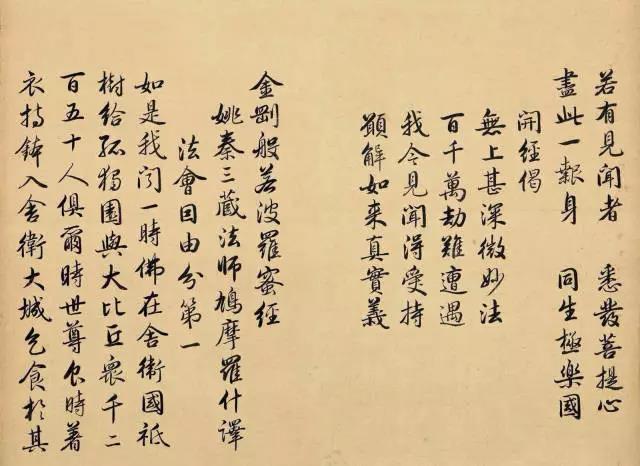 若有見聞者　悉發菩提心
盡此一報身　同生極樂國
開經偈
無上甚深微妙法
百千萬劫難遭遇
我今見聞得受持
願解如来真實義
金剛般若波羅蜜經
姚秦三藏法師鳩摩羅什譯
法會因由分第一
如是我聞一時佛在舍衛國祇
樹給孤獨園與大比丘衆千二
百五十人俱爾時世尊食時著
衣持鉢入舍衛大城乞食於其